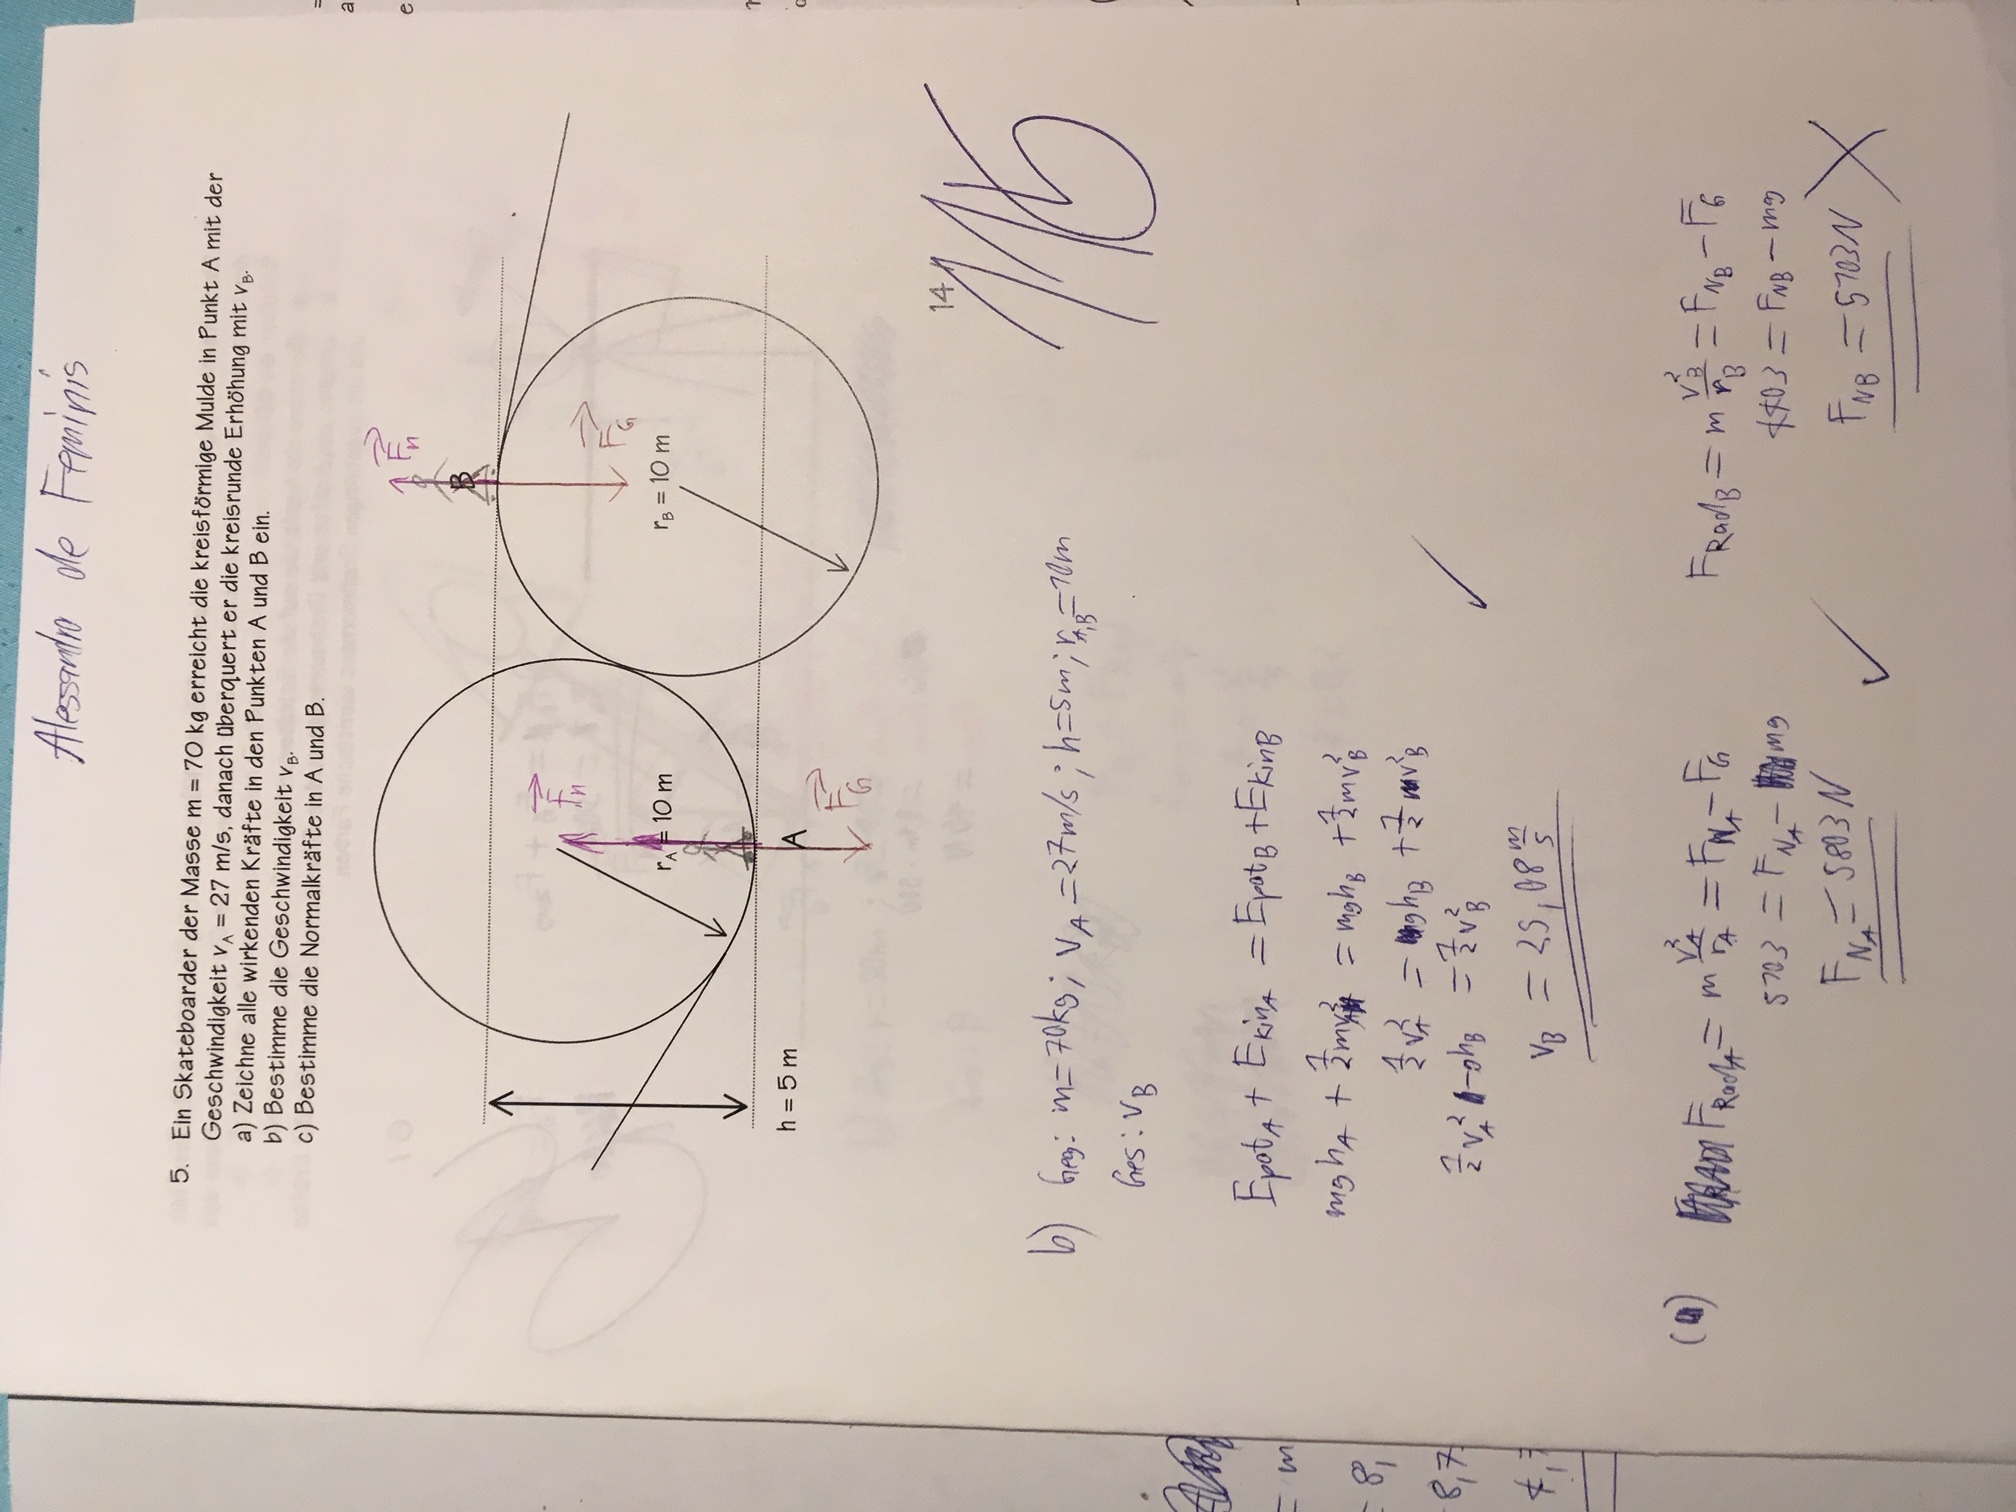 Alessandro de Feminis
5. Ein Skateboarder der Masse m = 70 kg erreicht die kreisförmige Mulde in Punkt A mit der
Geschwindigkeit v_A = 27 m/s, danach überquert er die kreisrunde Erhöhung mit v_B.
a) Zeichne alle wirkenden Kräfte in den Punkten A und B ein.
b) Bestimme die Geschwindigkeit v_B.
c) Bestimme die Normalkräfte in A und B.
F_n
B
F_n
F_G
r_A = 10 m
r_B = 10 m
h = 5 m
A
F_G
14
b) Geg: m = 70kg; v_A = 27m/s; h=5m; r_A,B = 10m
Ges: v_B
Epot_A + Ekin_A = Epot_B + Ekin_B
mgh_A + 1/2 mv_A² = mgh_B + 1/2 mv_B²
1/2 v_A² = gh_B + 1/2 v_B²
1/2 v_A² - gh_B = 1/2 v_B²
v_B = 25,08 m/s
F_Rad_A = m v_A²/r_A = F_N_A - F_G
5103 = F_N_A - mg
F_N_A = 5803 N
F_Rad_B = m v_B²/r_B = F_N_B - F_G
4403 = F_NB - mg
F_NB = 5103 N
= m
= 8,
8,7